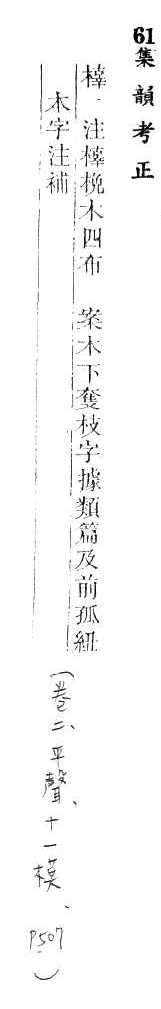 61集韻考正
樺 注樺桅木四布 案木下奪枝字據類篇及前孤紐
本字注補
（卷二、平聲、十一模、P507）